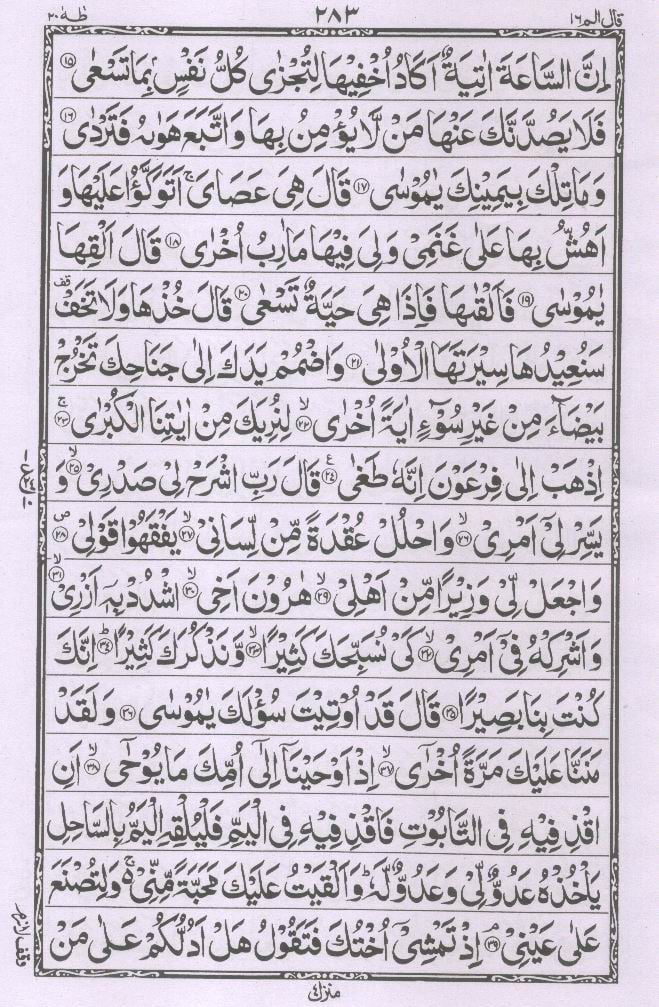 طٰهٰ ٢٠ ٢٨٣ قال الم ١٦
اِنَّ السَّاعَةَ اٰتِيَةٌ اَكَادُ اُخْفِيْهَا لِتُجْزٰى كُلُّ نَفْسٍۭ بِمَا تَسْعٰى ۝١٥
فَلَا يَصُدَّنَّكَ عَنْهَا مَنْ لَّا يُؤْمِنُ بِهَا وَاتَّبَعَ هَوٰىهُ فَتَرْدٰى ۝١٦
وَمَا تِلْكَ بِيَمِيْنِكَ يٰمُوْسٰى ۝١٧ قَالَ هِىَ عَصَاىَ ۚ اَتَوَكَّؤُا عَلَيْهَا وَ
اَهُشُّ بِهَا عَلٰى غَنَمِىْ وَلِىَ فِيْهَا مَاٰرِبُ اُخْرٰى ۝١٨ قَالَ اَلْقِهَا
يٰمُوْسٰى ۝١٩ فَاَلْقٰىهَا فَاِذَا هِىَ حَيَّةٌ تَسْعٰى ۝٢٠ قَالَ خُذْهَا وَلَا تَخَفْ ۥقف
سَنُعِيْدُهَا سِيْرَتَهَا الْاُوْلٰى ۝٢١ وَاضْمُمْ يَدَكَ اِلٰى جَنَاحِكَ تَخْرُجْ
بَيْضَآءَ مِنْ غَيْرِ سُوْٓءٍ اٰيَةً اُخْرٰى ۙ۝٢٢ لِنُرِيَكَ مِنْ اٰيٰتِنَا الْكُبْرٰى ۚ۝٢٣
اِذْهَبْ اِلٰى فِرْعَوْنَ اِنَّهٗ طَغٰى ۝٢٤ ع قَالَ رَبِّ اشْرَحْ لِىْ صَدْرِىْ ۙ۝٢٥ وَ
يَسِّرْ لِىْٓ اَمْرِىْ ۙ۝٢٦ وَاحْلُلْ عُقْدَةً مِّنْ لِّسَانِىْ ۙ۝٢٧ يَفْقَهُوْا قَوْلِىْ ۪۝٢٨
وَاجْعَلْ لِّىْ وَزِيْرًا مِّنْ اَهْلِىْ ۙ۝٢٩ هٰرُوْنَ اَخِى ۙ۝٣٠ اشْدُدْ بِهٖٓ اَزْرِىْ ۙ۝٣١
وَاَشْرِكْهُ فِىْٓ اَمْرِىْ ۙ۝٣٢ كَىْ نُسَبِّحَكَ كَثِيْرًا ۙ۝٣٣ وَّنَذْكُرَكَ كَثِيْرًا ؕ۝٣٤ اِنَّكَ
كُنْتَ بِنَا بَصِيْرًا ۝٣٥ قَالَ قَدْ اُوْتِيْتَ سُؤْلَكَ يٰمُوْسٰى ۝٣٦ وَلَقَدْ
مَنَنَّا عَلَيْكَ مَرَّةً اُخْرٰٓى ۙ۝٣٧ اِذْ اَوْحَيْنَآ اِلٰٓى اُمِّكَ مَا يُوْحٰٓى ۙ۝٣٨ اَنِ
اقْذِفِيْهِ فِى التَّابُوْتِ فَاقْذِفِيْهِ فِى الْيَمِّ فَلْيُلْقِهِ الْيَمُّ بِالسَّاحِلِ
يَاْخُذْهُ عَدُوٌّ لِّىْ وَعَدُوٌّ لَّهٗ ؕ وَاَلْقَيْتُ عَلَيْكَ مَحَبَّةً مِّنِّىْ ۚ وَلِتُصْنَعَ
عَلٰى عَيْنِىْ ۘ۝٣٩ اِذْ تَمْشِىْٓ اُخْتُكَ فَتَقُوْلُ هَلْ اَدُلُّكُمْ عَلٰى مَنْ
منزل ٤